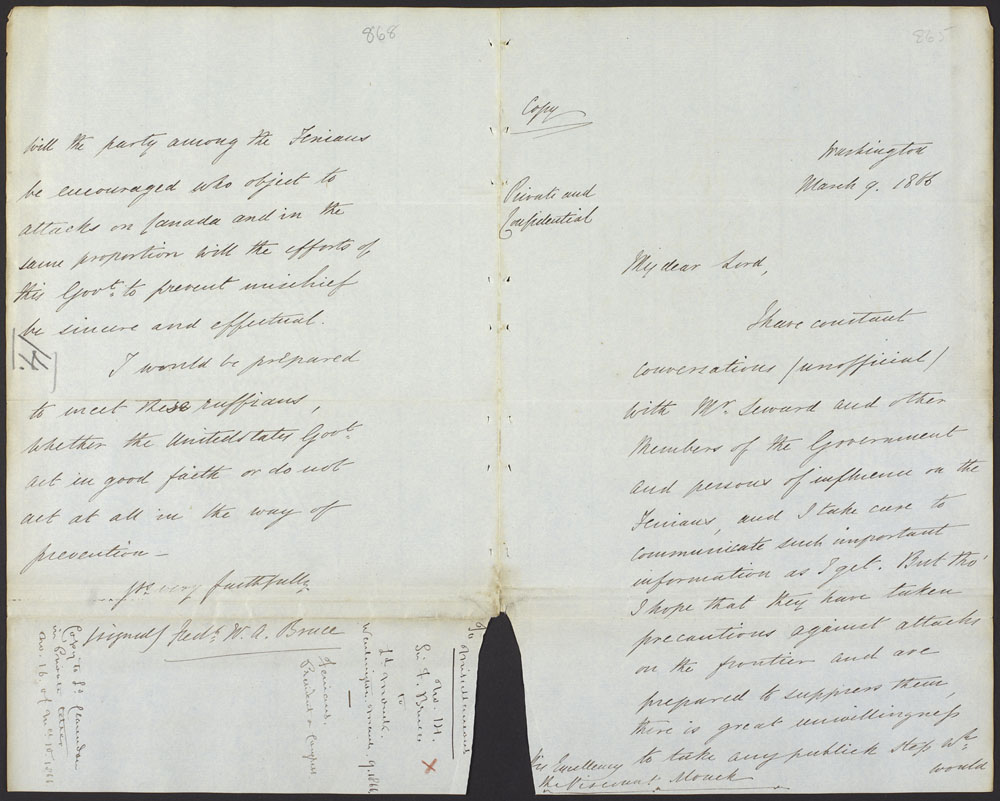 868
will the party among the Fenians
be encouraged who object to
attacks on Canada and in the
same proportion will the efforts of
this Govt. to prevent mischief
be sincere and effectual.
I would be prepared
to meet these ruffians,
whether the United States Govt.
act in good faith or do not
act at all in the way of
prevention —
Yrs. very faithfully
(signed) Fredk. W. A. Bruce
Copy to Ld. Clarendon
in Private letter
No. 16. of Mch 10. 1866
Fenians.
President or Congress
Washington March 9. 1866
Ld. Monck.
to
Sir F. Bruce
No. 14.
To Miscellaneous
865
Copy
Washington
March 9. 1866
Private and
Confidential
My dear Lord,
I have constant
conversations (unofficial)
with Mr. Seward and other
Members of the Government
and persons of influence on the
Fenians, and I take care to
communicate such important
information as I get. But tho'
I hope that they have taken
precautions against attacks
on the frontier and are
prepared to suppress them,
there is great unwillingness
to take any publick step wh.
would
His Excellency
the Viscount Monck